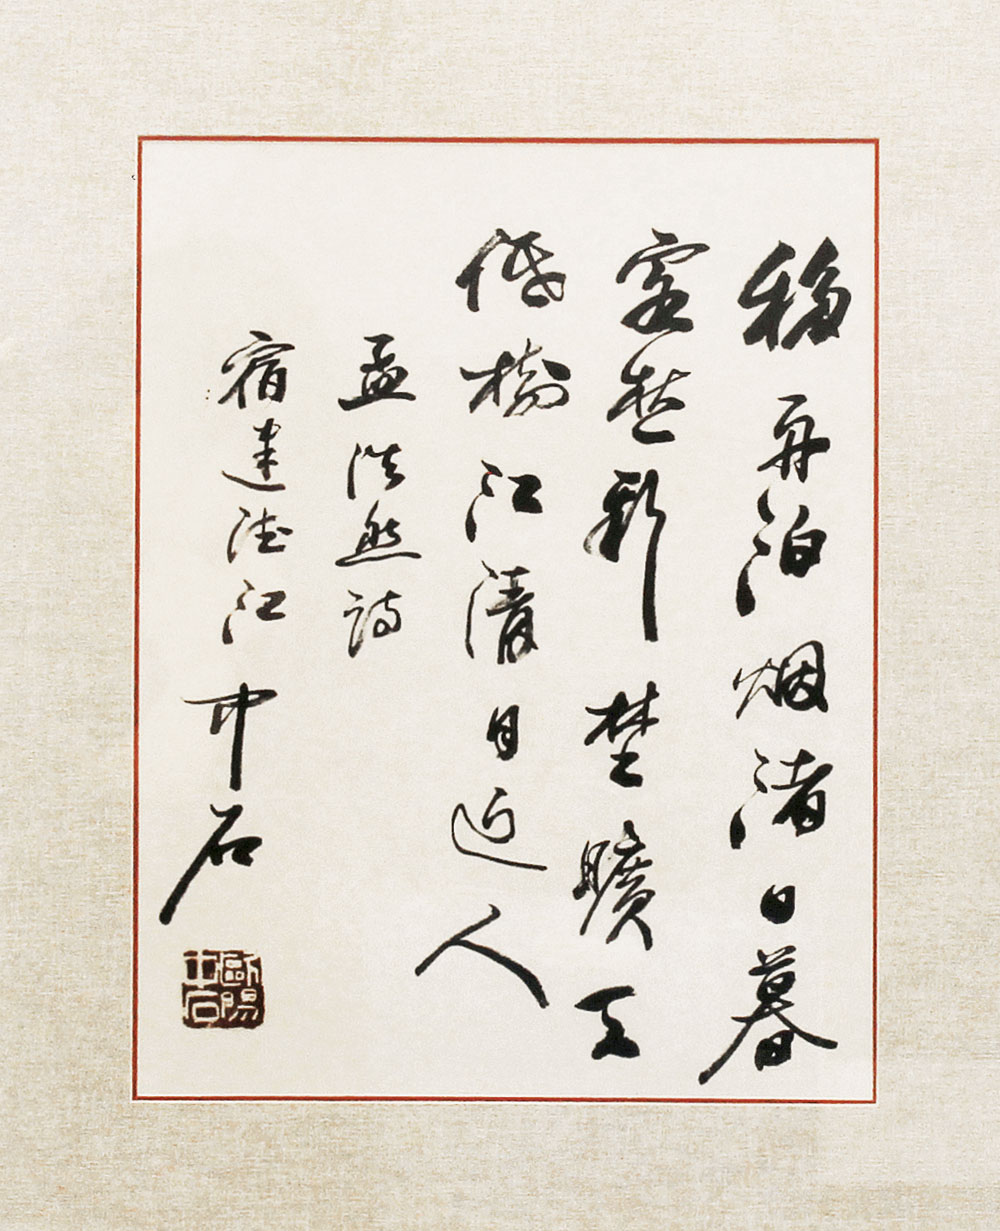 移舟泊烟渚日暮
客愁新埜曠天
低樹江清月近人
孟浩然詩
宿建德江 中石
歐陽中石